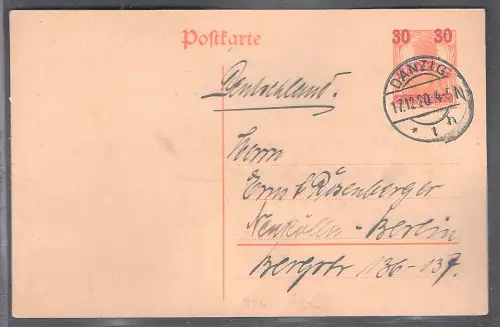 30 30
Postkarte
DANZIG
17.12.20. 4-5 N
* 1 h
Deutschland.
Herrn
Ernst Rosenberger
Neukölln - Berlin
Bergstr 136-137.